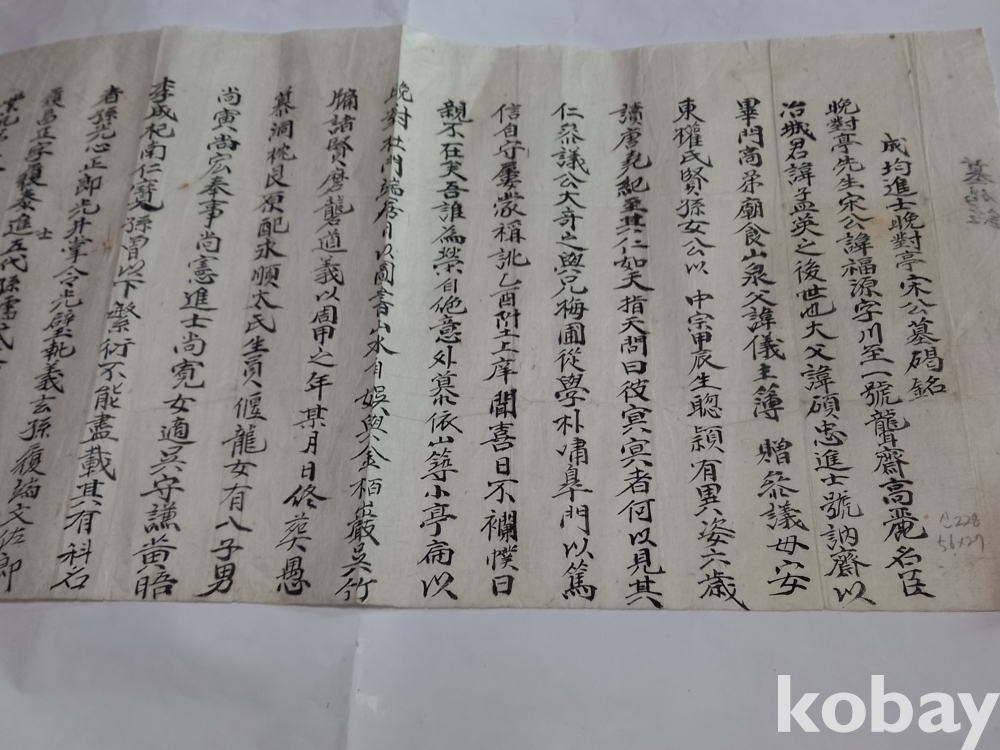 成均進士晩對亭宋公墓碣銘
晩對亭先生宋公諱福源字川至一號聾齋高麗名臣
冶城君諱孟英之後世也大父諱碩忠進士號訥齋以
畢門高弟廟食山泉父諱儀主簿 贈叅議母安
東權氏賢孫女公以 中宗甲辰生聰穎有異姿六歲
讀唐堯紀至其仁如天指天問曰彼冥冥者何以見其
仁叅議公大奇之與兄梅圃從學朴嘯皐門以篤
信自守屢蒙稱詡乙酉陞上庠聞喜日不襴幞曰
親不在矣吾誰為榮自絶意外慕依山築小亭扁以
晩對杜門端居日以圖書山水自娛與金栢巖吳竹
牖諸賢磨礱道義以周甲之年某月日終葬愚
慕洞枕艮原配永順太氏生員偃龍女有八子男
尚寅尚宏奉事尚憲進士尚寬女適吳守謙黃晤
李成杞南仁寶孫曾以下繁衍不能盡載其有科名
者孫光心正郎光升掌令光壁執義玄孫履端文佐郎
履昌正字履泰進士五代孫儒式
墓碣銘
228
56×27
kobay